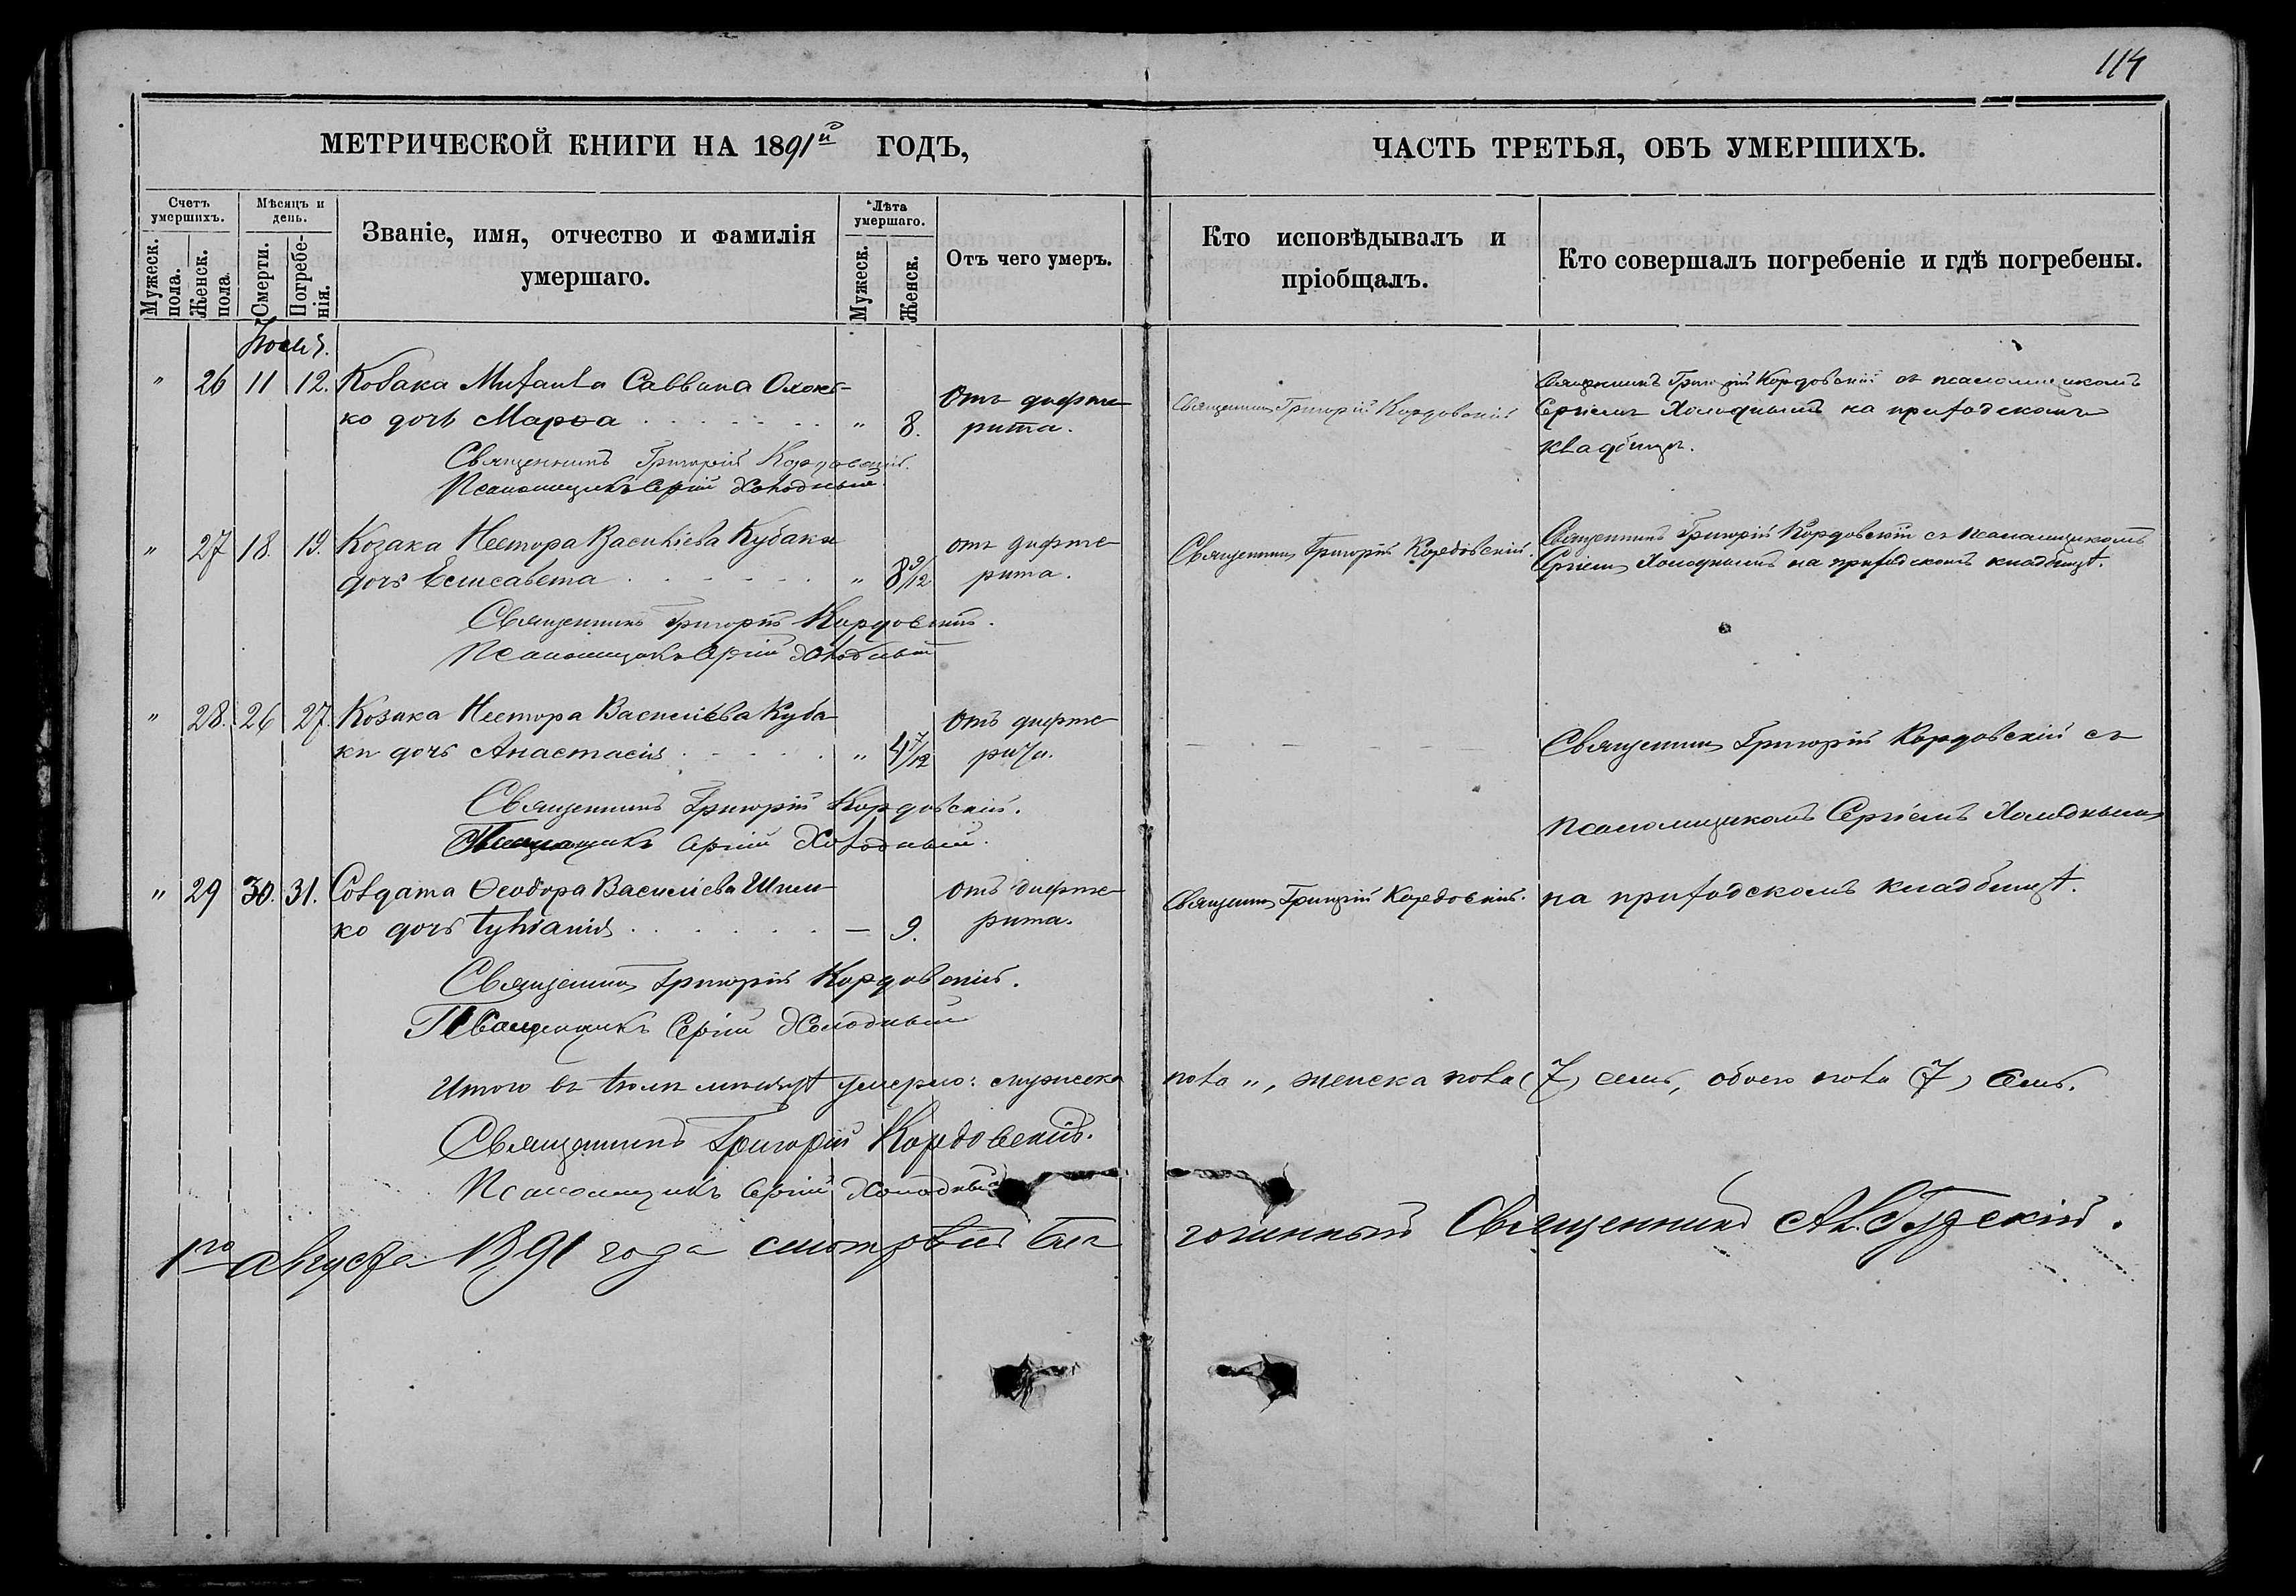 114
МЕТРИЧЕСКОЙ КНИГИ НА 1891й ГОДЪ,
ЧАСТЬ ТРЕТЬЯ, ОБЪ УМЕРШИХЪ.
Счетъ умершихъ.
Мѣсяцъ и день.
Званіе, имя, отчество и фамилія умершаго.
Лѣта умершаго.
Отъ чего умеръ.
Кто исповѣдывалъ и пріобщалъ.
Кто совершалъ погребеніе и гдѣ погребены.
Мужеск. пола.
Женск. пола.
Смерти.
Погребенія.
Мужеск.
Женск.
Іюль.
" 26 11 12. Козака Михаила Саввина
ко дочь Марѳа " 8.
Отъ дифте-
рита.
Священникъ Григорій Кордовскій
Священникъ Григорій Кордовскій съ псаломщикомъ
Сергіемъ Холоднымъ на приходскомъ
кладбищѣ.
Священникъ Григорій Кордовскій.
Псаломщикъ Сергій Холодный.
" 27 18. 19. Козака Нестора Василіева Кубаки
дочь Елисавета " 8 9/12
отъ дифте-
рита.
Священникъ Григорій Кордовскій.
Священникъ Григорій Кордовскій съ псаломщикомъ
Сергіемъ Холоднымъ на приходскомъ кладбищѣ.
Священникъ Григорій Кордовскій.
Псаломщикъ Сергій Холодный
" 28. 26 27. Козака Нестора Василіева Куба-
ки дочь Анастасія " 4 7/12
Отъ дифте-
рита.
Священникъ Григорій Кордовскій съ
псаломщикомъ Сергіемъ Холоднымъ
на приходскомъ кладбищѣ.
Священникъ Григорій Кордовскій.
Псаломщикъ Сергій Холодный.
" 29 30. 31. Солдата Ѳеодора Василіева
ко дочь Іуліанія — 9.
отъ дифте-
рита.
Священникъ Григорій Кордовскій.
Священникъ Григорій Кордовскій.
Псаломщикъ Сергій Холодный
Итого въ іюлѣ мѣсяцѣ умерло: мужеска пола ", женска пола (7) семь, обоего пола (7) семь.
Священникъ Григорій Кордовскій.
Псаломщикъ Сергій Холодный
1го августа 1891 года смотрѣлъ благочинный Священникъ